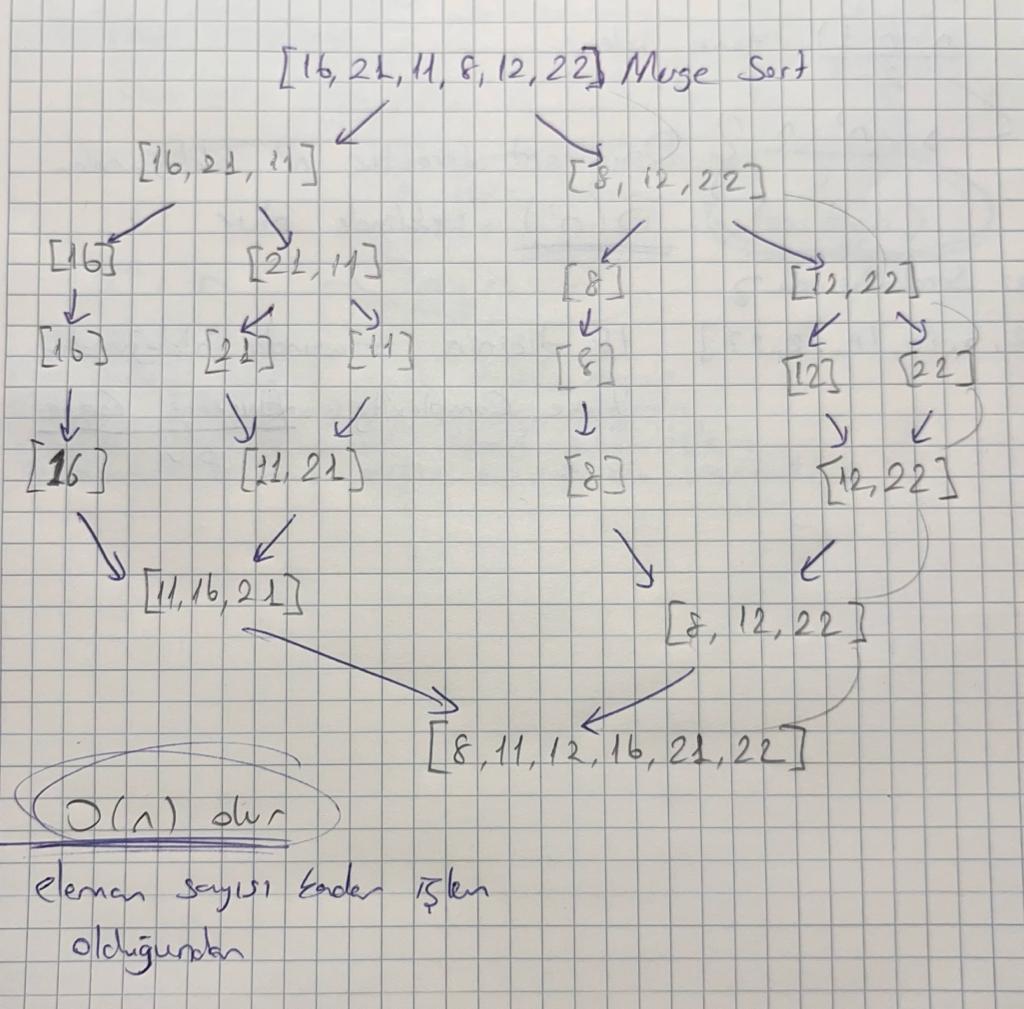 [16, 21, 11, 8, 12, 22] Merge Sort
[16, 21, 11] [8, 12, 22]
[16] [21, 11] [8] [12, 22]
[16] [21] [11] [8] [12] [22]
[16] [11, 21] [8] [12, 22]
[11, 16, 21] [8, 12, 22]
[8, 11, 12, 16, 21, 22]
O(n) olur
eleman sayısı kadar işlem
olduğundan